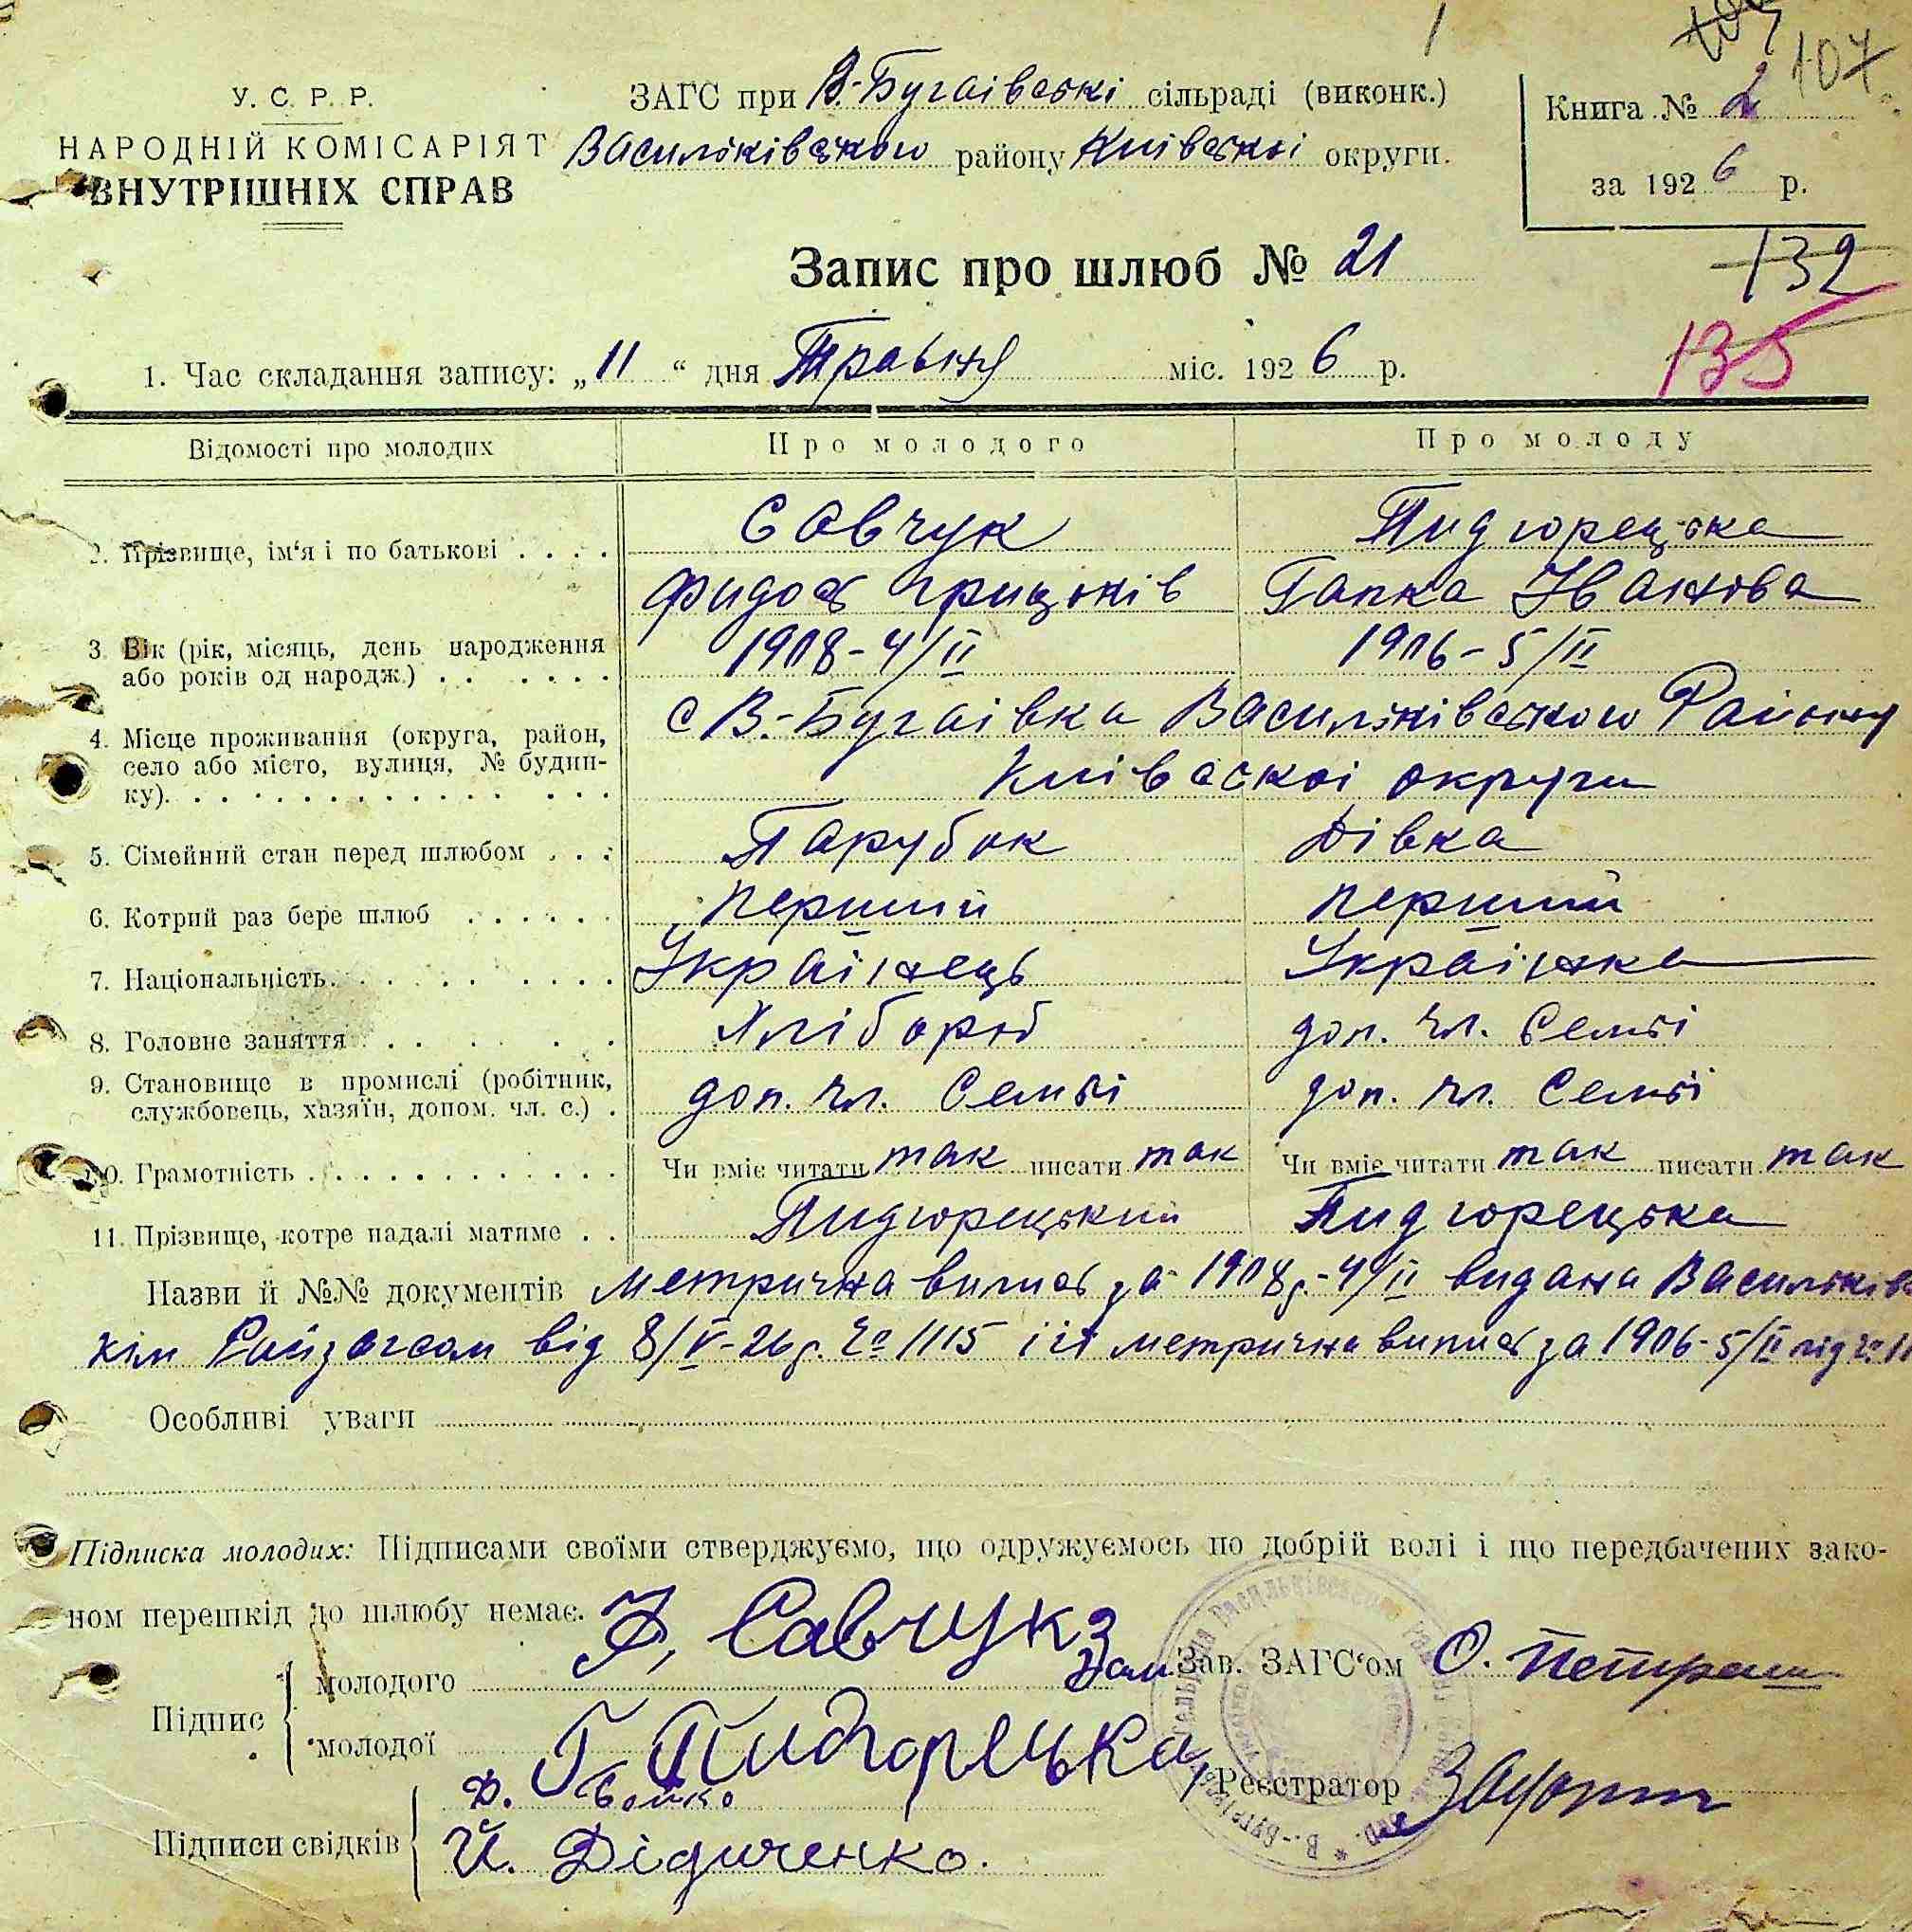 107
У. С. Р. Р.
НАРОДНІЙ КОМІСАРІЯТ
ВНУТРІШНІХ СПРАВ
ЗАГС при В-Бугаівські сільраді (виконк.)
Васильківського району Київської округи.
Книга № 2
за 1926 р.
Запис про шлюб № 21
132
135
1. Час складання запису: „11“ дня Травня міс. 1926 р.
Відомості про молодих Про молодого Про молоду
2. Прізвище, ім‘я і по батькові . . . . Савчук Пидгорецька
Фидос Грицьків Гапка Іванова
3. Вік (рік, місяць, день народження 1908-4/II 1906-5/II
або років од народж.)
4. Місце проживання (округа, район, с В.-Бугаівка Васильківського Району
село або місто, вулиця, № будин-
ку). Київськоі округи
5. Сімейний стан перед шлюбом . . . Парубок Дівка
6. Котрий раз бере шлюб . . . . . . Перший Перший
7. Національність. Українець Українка
8. Головне заняття Хлібороб доп. чл. Семьі
9. Становище в промислі (робітник, доп. чл. Семьі доп. чл. Семьі
службовець, хазяїн, допом. чл. с.) .
10. Грамотність Чи вміє читати так писати так Чи вміє читати так писати так
11. Прізвище, котре надалі матиме . . Пидгорецький Пидгорецька
Назви й №№ документів Метрична випись за 1908 р.-4/II видана Васильків
кім Райзагсом від 8/V-26 р. № 1115 і її метрична випись за 1906-5/II під №
Особливі уваги
Підписка молодих: Підписами своїми стверджуємо, що одружуємось по добрій волі і що передбачених зако-
ном перешкід до шлюбу немає.
Підпис молодого Ф. Савчук Зам. Зав. ЗАГС‘ом О. Петраш
молодої Г. Пидгорецька Реєстратор
Підписи свідків Д. Бойко
Й. Дідиченко.